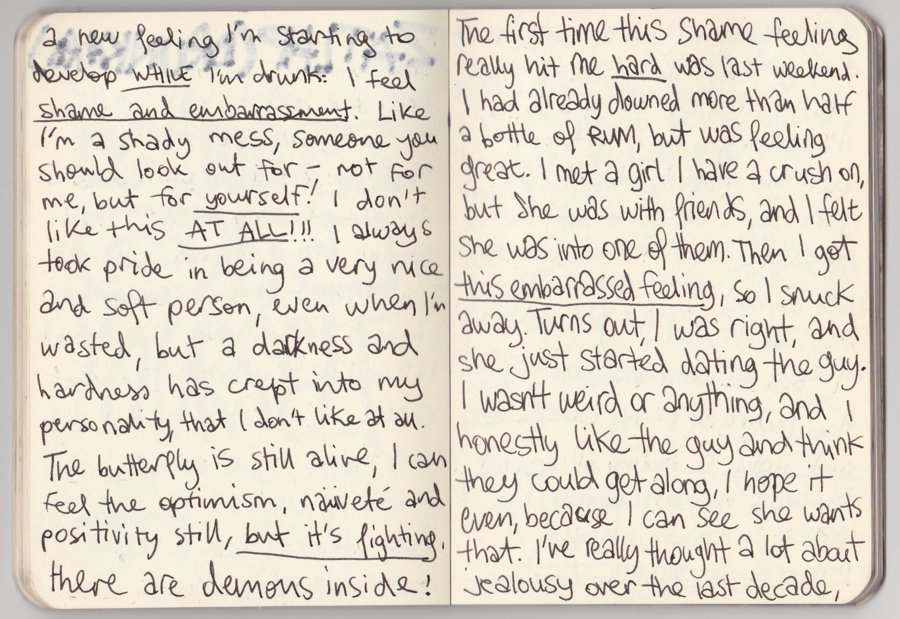 a new feeling I'm starting to
develop WHILE I'm drunk: I feel
shame and embarrassment. Like
I'm a shady mess, someone you
should look out for – not for
me, but for yourself! I don't
like this AT ALL!!! I always
took pride in being a very nice
and soft person, even when I'm
wasted, but a darkness and
hardness has crept into my
personality, that I don't like at all.
The butterfly is still alive, I can
feel the optimism, naiveté and
positivity still, but it's fighting.
there are demons inside!
The first time this shame feeling
really hit me hard was last weekend.
I had already downed more than half
a bottle of RUM, but was feeling
great. I met a girl I have a crush on,
but she was with friends, and I felt
she was into one of them. Then I got
this embarrassed feeling, so I snuck
away. Turns out, I was right, and
she just started dating the guy.
I wasn't weird or anything, and I
honestly like the guy and think
they could get along, I hope it
even, because I can see she wants
that. I've really thought a lot about
jealousy over the last decade,